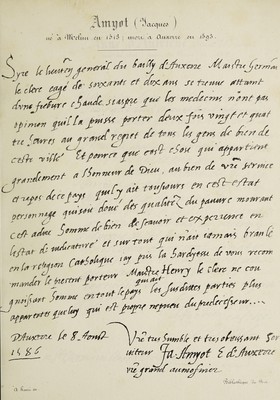 Amyot (Jacques)
né à Melun en 1513; mort à Auxerre en 1593.
Syre le lieuten general du bailly d'Auxerre Maistre Germain
le clerc eagé de soixante et dix ans se treuve attaint
d'une fiebvre chaude si aspre que les medecins n'ont pas
opinion qu'il la puisse porter deux fois vingt et quat
tre heures au grand regret de tous les gens de bien de
ceste ville Et pource que c'est chose qui appartient
grandement a l'honneur de Dieu, au bien de vre service
et repos de ce pays qu'il y ait tousjours en cest estat
personnage qui soit doué des qualitez du pauvre mourant
cest a dire homme de bien de sçavoir et experience en
l'estat de judicature et sur tout qui n'ait jamais branlé
en la religion Catholique j'ay pris la hardyesse de vous recom
mander le present porteur Maistre Henry le clerc ne con
gnoissant homme en tout le pays qui ait les susdites parties plus
apparentes que luy qui est propre nepveu du predecesseur
D'Auxerre le 8 Aoust
1586
Vre tres humble et tres obeissant ser
viteur Ja. Amyot E. d'Auxerre
vre grand aumosnier